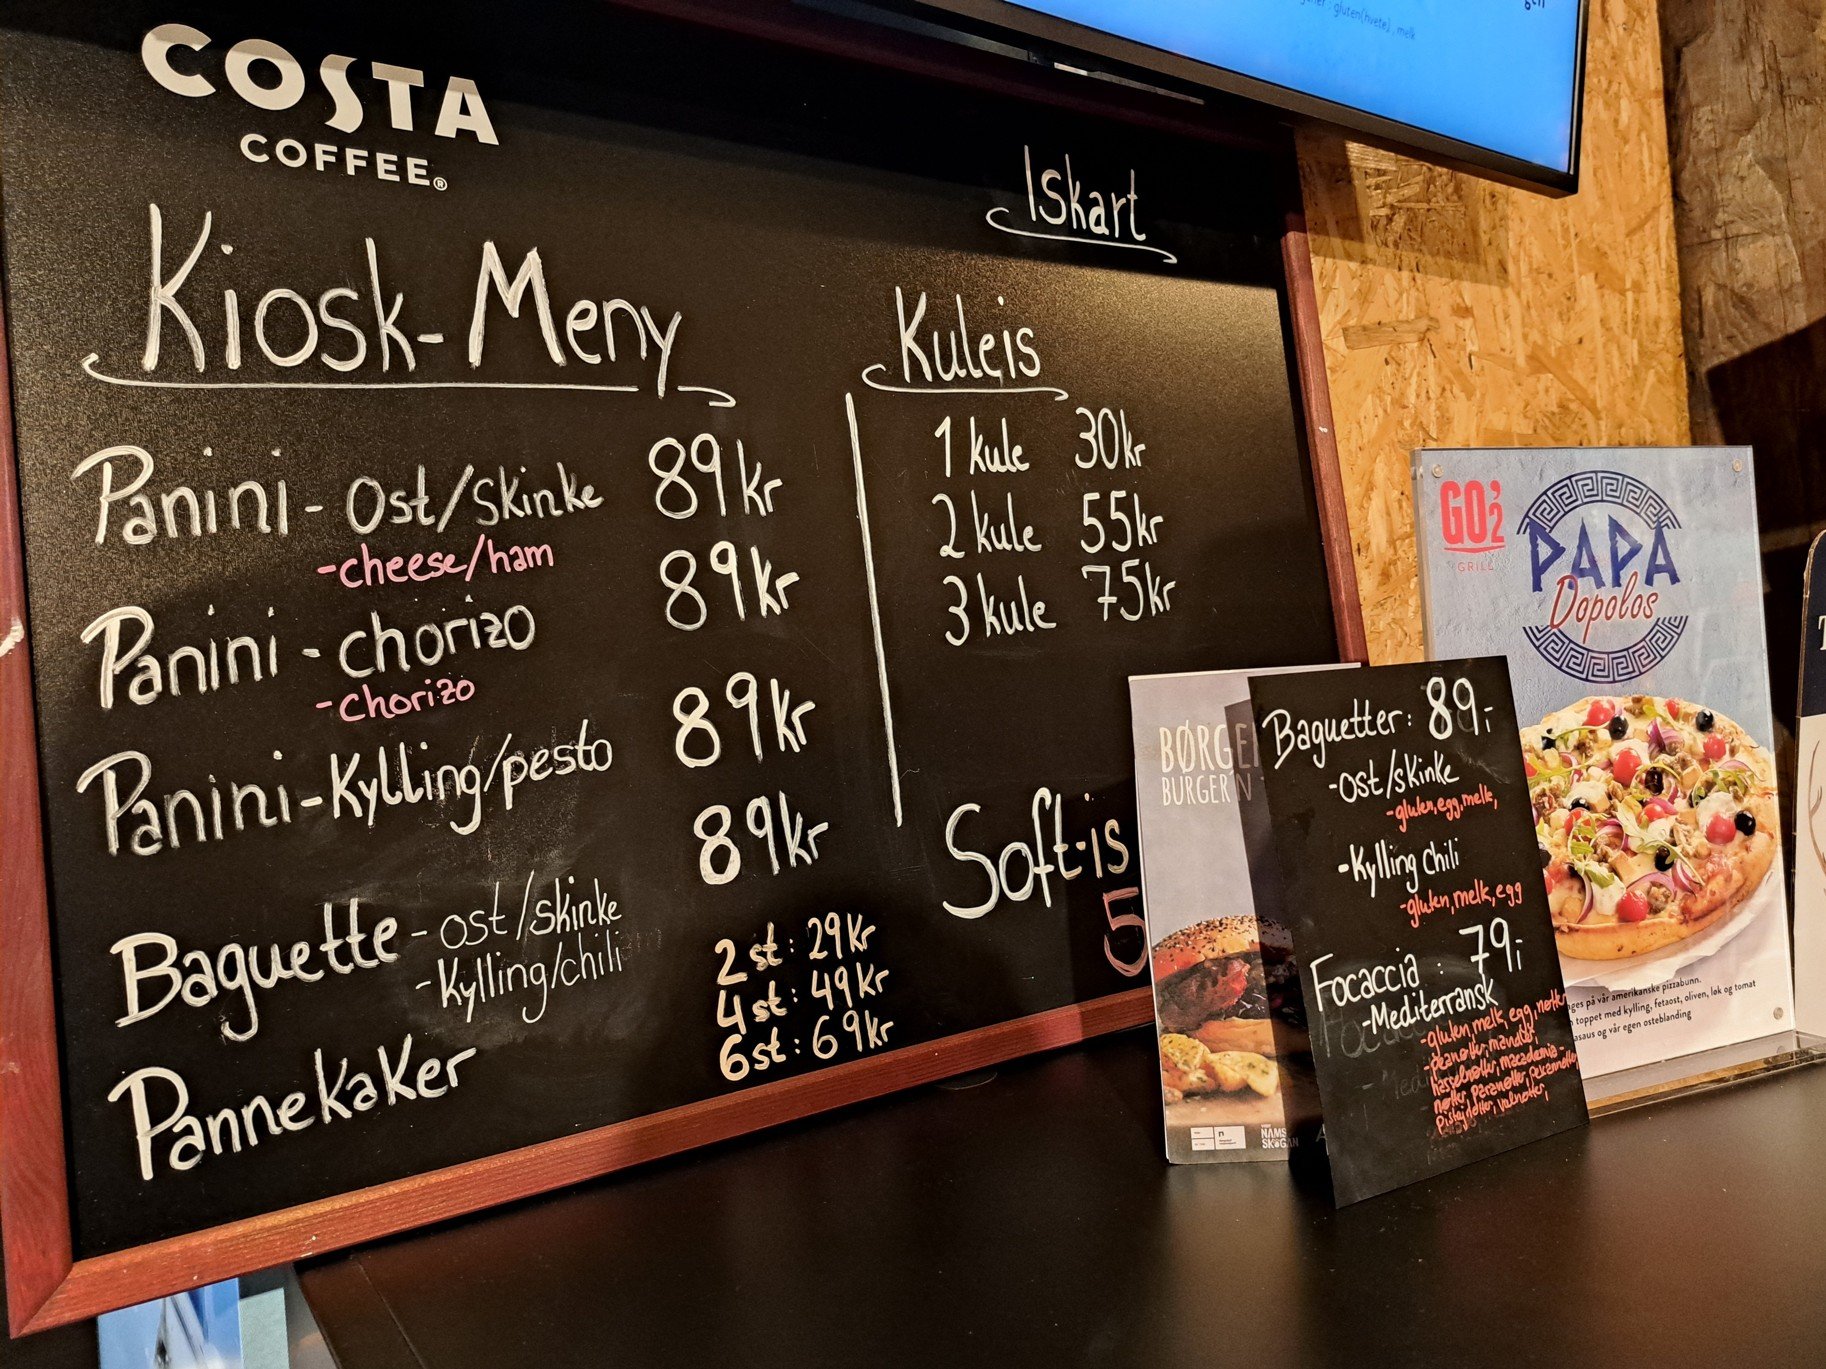 COSTA
COFFEE®
Kiosk-Meny
Panini - Ost/Skinke 89kr
-cheese/ham
Panini - chorizo 89kr
-chorizo
Panini - Kylling/pesto 89kr
Baguette - ost/skinke 89kr
- Kylling/chili
Pannekaker
2 st: 29kr
4 st: 49kr
6 st: 69kr
Iskart
Kuleis
1 kule 30kr
2 kule 55kr
3 kule 75kr
Soft-is
5
gluten(hvete), melk
BURGER'N
NAMS
SKOGAN
Baguetter: 89,-
-Ost/skinke
-gluten, egg, melk,
-Kylling chili
-gluten, melk, egg
Focaccia : 79,-
-Mediterransk
-gluten, melk, egg, nøtter
-peanøtter, mandler,
hasselnøtter, macadamia-
nøtter, paranøtter, pekannøtter,
Pistasjnøtter, valnøtter,
GO'2
GRILL
PAPA
Dopolos
på vår amerikanske pizzabunn.
toppet med kylling, fetaost, oliven, løk og tomat
og vår egen osteblanding